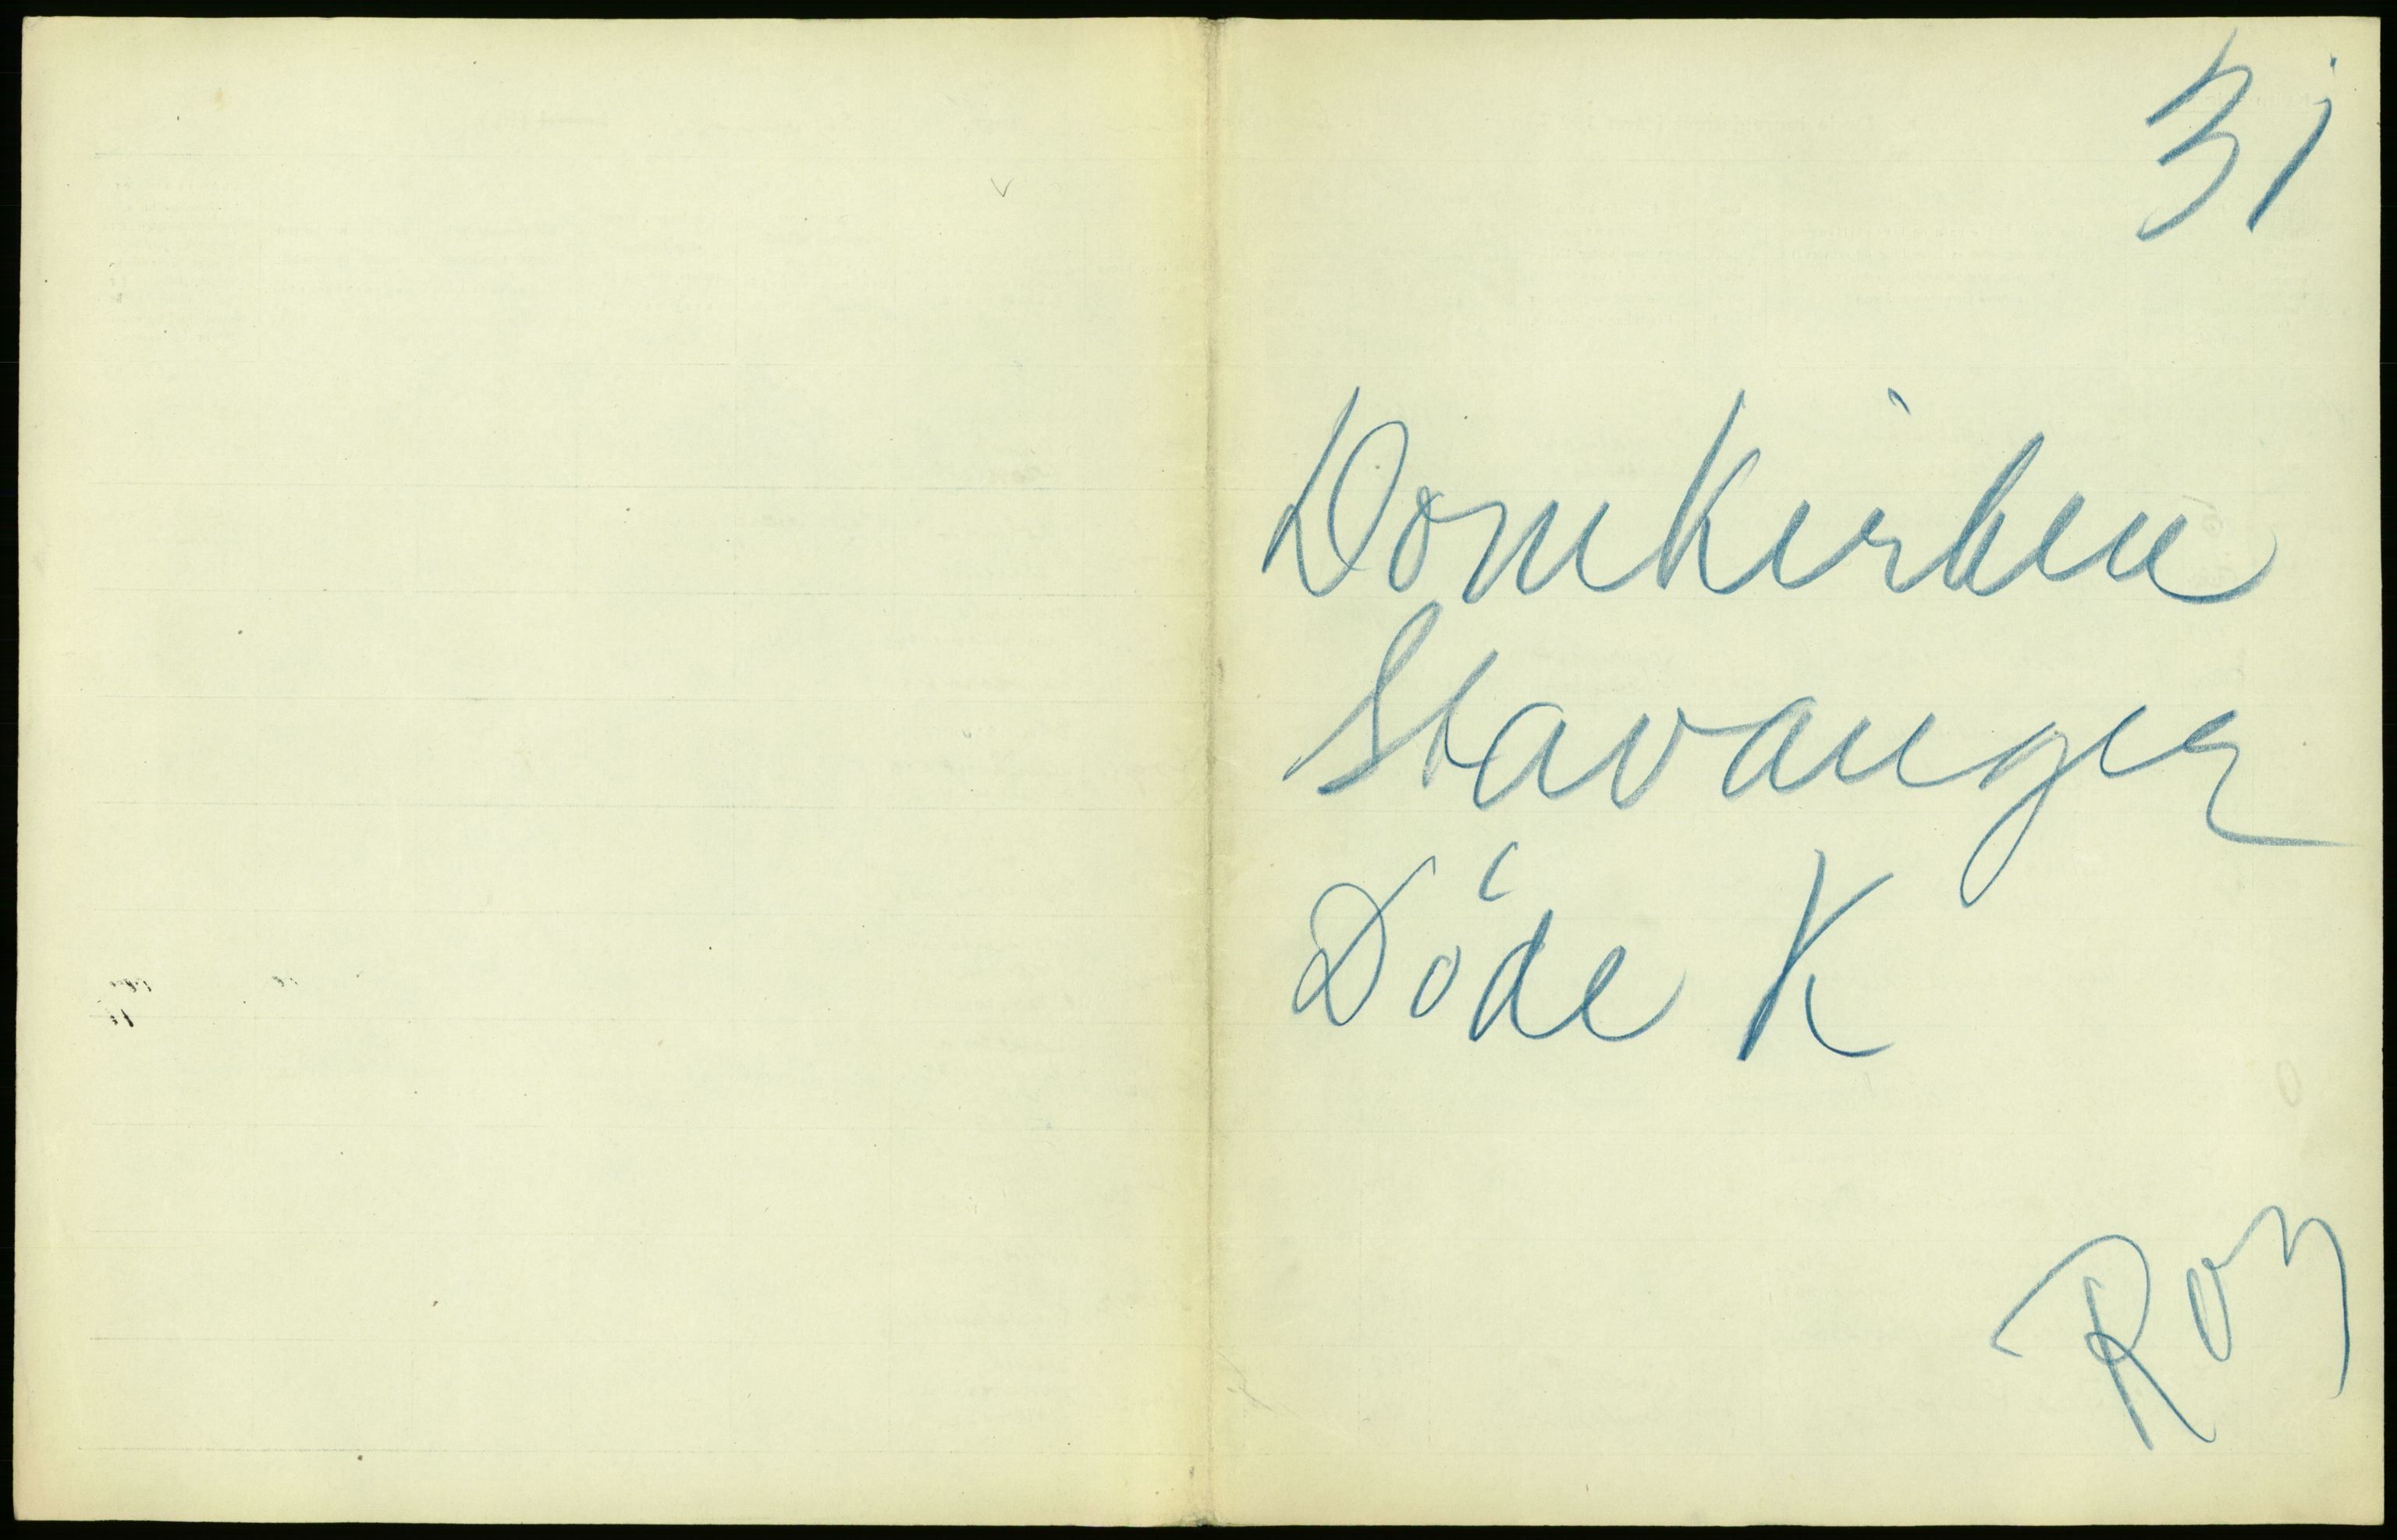 31
Domkirken
Stavanger
Döde K
Rog